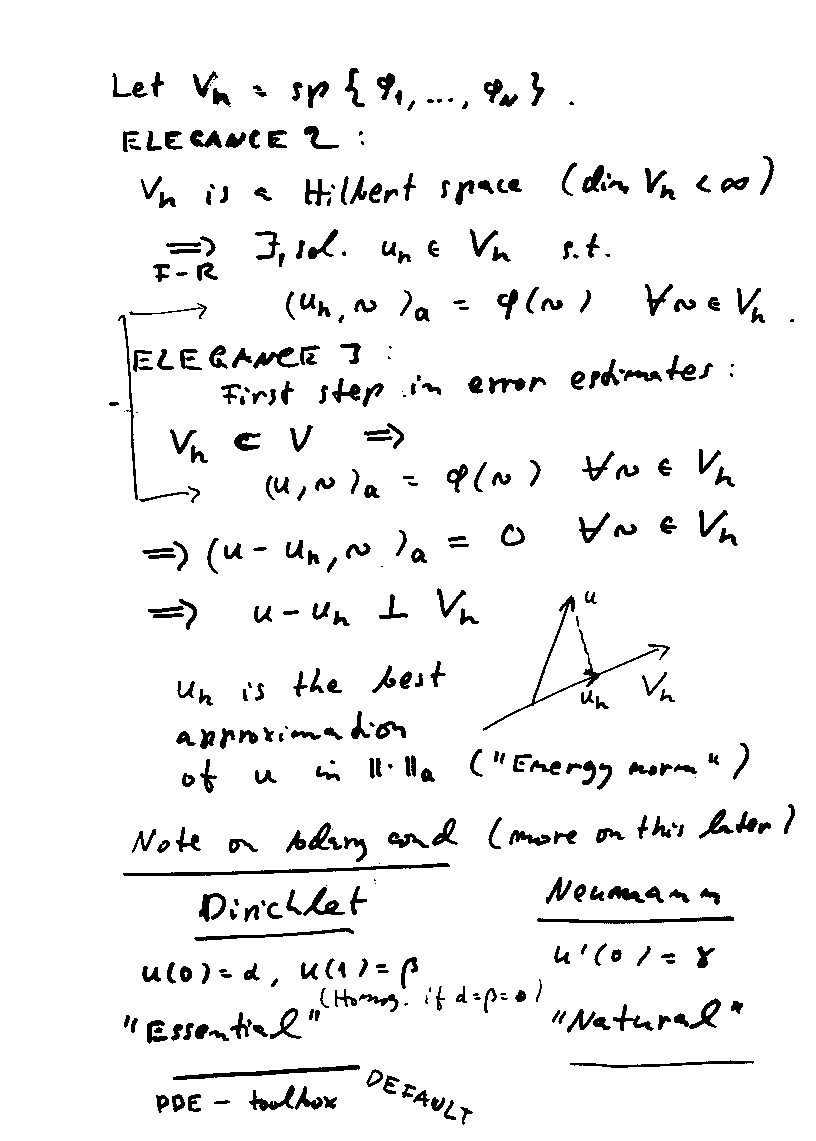 Let Vₕ = sp { φ₁, ..., φ_N } .
ELEGANCE 2 :
Vₕ is a Hilbert space (dim Vₕ < ∞)
⟹ ∃₁ sol. uₕ ∈ Vₕ s.t.
F-R
(uₕ, v)ₐ = φ(v) ∀v ∈ Vₕ .
ELEGANCE 3 :
First step in error estimates :
Vₕ ⊂ V ⟹
(u, v)ₐ = φ(v) ∀v ∈ Vₕ
⟹ (u - uₕ, v)ₐ = 0 ∀v ∈ Vₕ
⟹ u - uₕ ⊥ Vₕ
u
uₕ
Vₕ
uₕ is the best
approximation
of u in ‖·‖ₐ ("Energy norm")
Note on bdary cond (more on this later)
Dirichlet
Neumann
u(0) = α, u(1) = β
u'(0) = γ
(Homog. if α=β=0)
"Essential"
"Natural"
PDE - toolbox DEFAULT